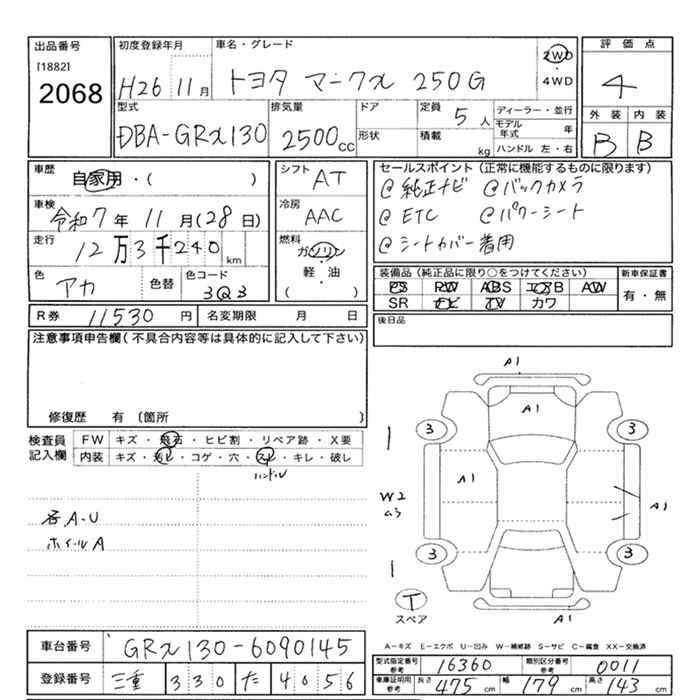 出品番号
[1882]
2068
初度登録年月
H26 11月
車名・グレード
トヨタ マークX 250G
2WD
・
4WD
評価点
4
外装 内装
B B
型式
DBA-GRX130
排気量
2500cc
ドア
形状
定員 5人
積載 kg
ディーラー・並行
モデル年式 年
ハンドル 左・右
車歴
自家用・( )
車検
令和7年11月(28日)
走行
12万3千240km
色
アカ
色替
色コード
3Q3
シフト
AT
冷房
AAC
燃料
ガソリン
・
軽・油
( )
セールスポイント(正常に機能するものに限ります)
@純正ナビ @バックカメラ
@ETC @パワーシート
@シートカバー着用
装備品(純正品に限り○をつけてください)
PS PW ABS エアB AW
SR ナビ TV カワ
新車保証書
有・無
R券 11530円
名変期限 月 日
後日品
注意事項申告欄(不具合内容等は具体的に記入して下さい)
修復歴 有(箇所 )
検査員記入欄
FW キズ・飛石・ヒビ割・リペア跡・X要
内装 キズ・汚レ・コゲ・穴・スレ・キレ・破レ
ハンドル
各A・U
ホイールA
A1
A1
3 3
W2
A1
A1
3 3
T
スペア
A1
A-キズ E-エクボ U-凹み W-補修跡 S-サビ C-腐食 XX-交換済
車台番号 GRX130-6090145
登録番号 三重 330 た 4056
型式指定番号 参考 16360
類別区分番号 参考 0011
車庫証明用 参考 長さ 475cm 幅 179cm 高さ 143cm